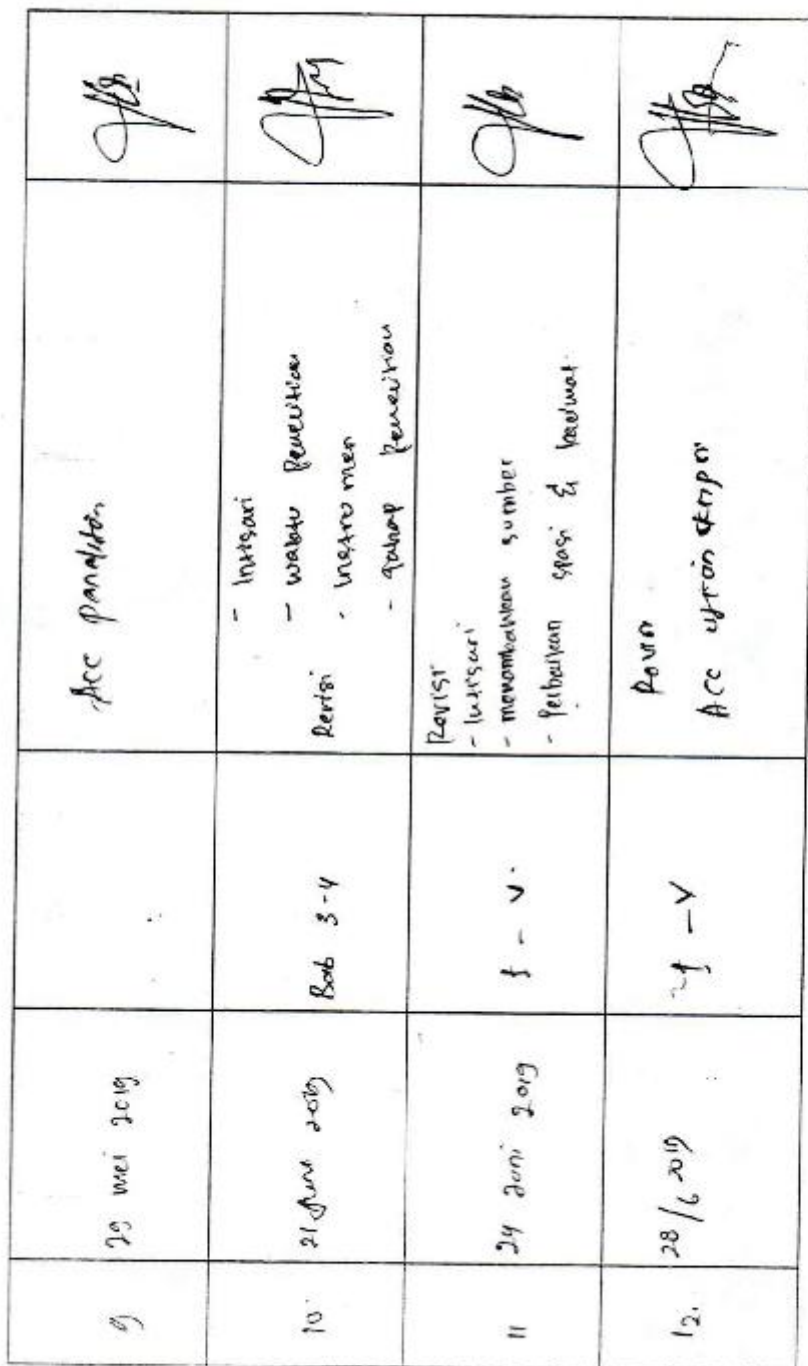 9
29 mei 2019
ACC
10
21 Juni 2019
Bab 3-4
Revisi
- Intisari
- waktu Penelitian
- Instrumen
- Tahap Penelitian
11
24 Juni 2019
I - V.
Revisi
- Intisari
- menambahkan sumber
- Perbaikan spasi & kalimat.
12.
28/6 2019
I - V
ACC ujian